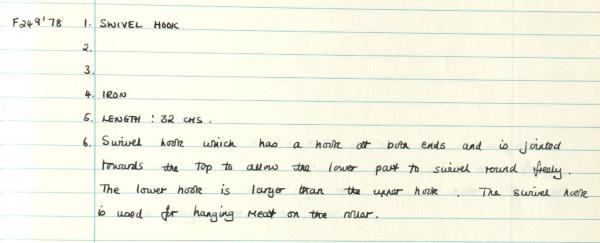 F249'78 1. SWIVEL HOOK
2.
3.
4. IRON
5. LENGTH : 32 CMS.
6. Swivel hook which has a hook at both ends and is jointed
towards the top to allow the lower part to swivel round freely.
The lower hook is larger than the upper hook. The swivel hook
is used for hanging meat on the roller.